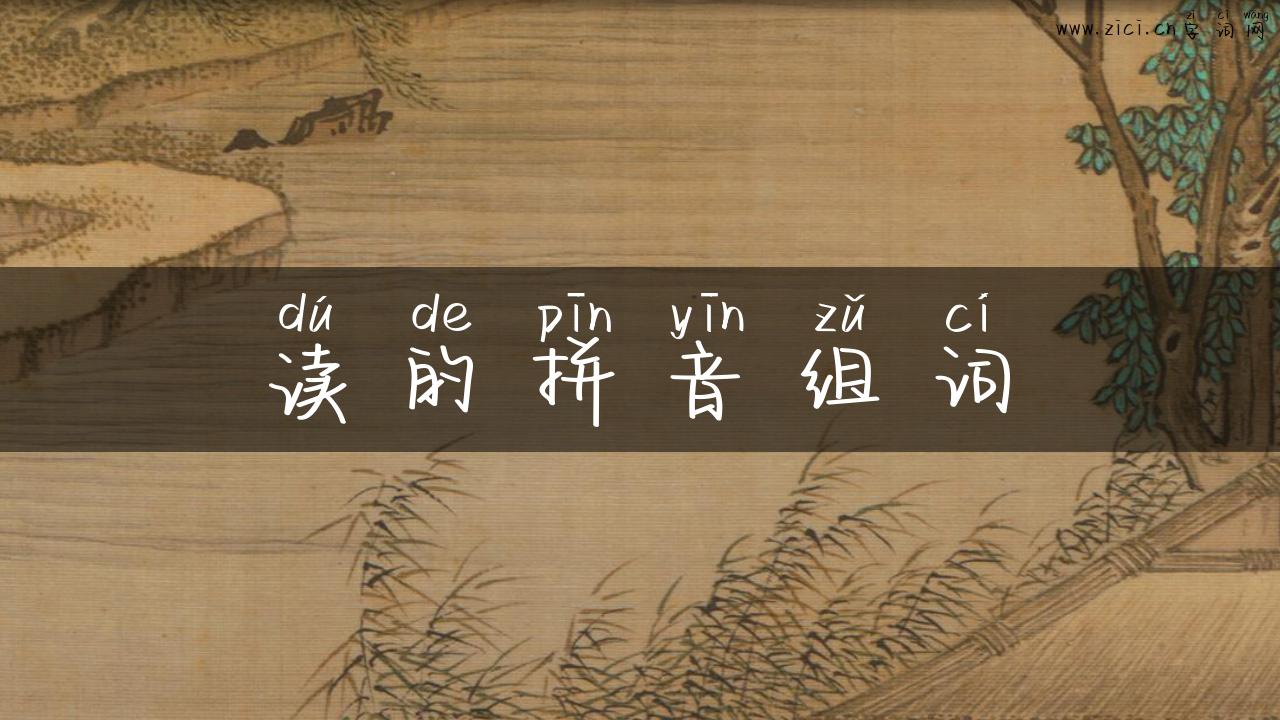 zì cí wǎng
www.zici.cn字词网
dú de pīn yīn zǔ cí
读的拼音组词